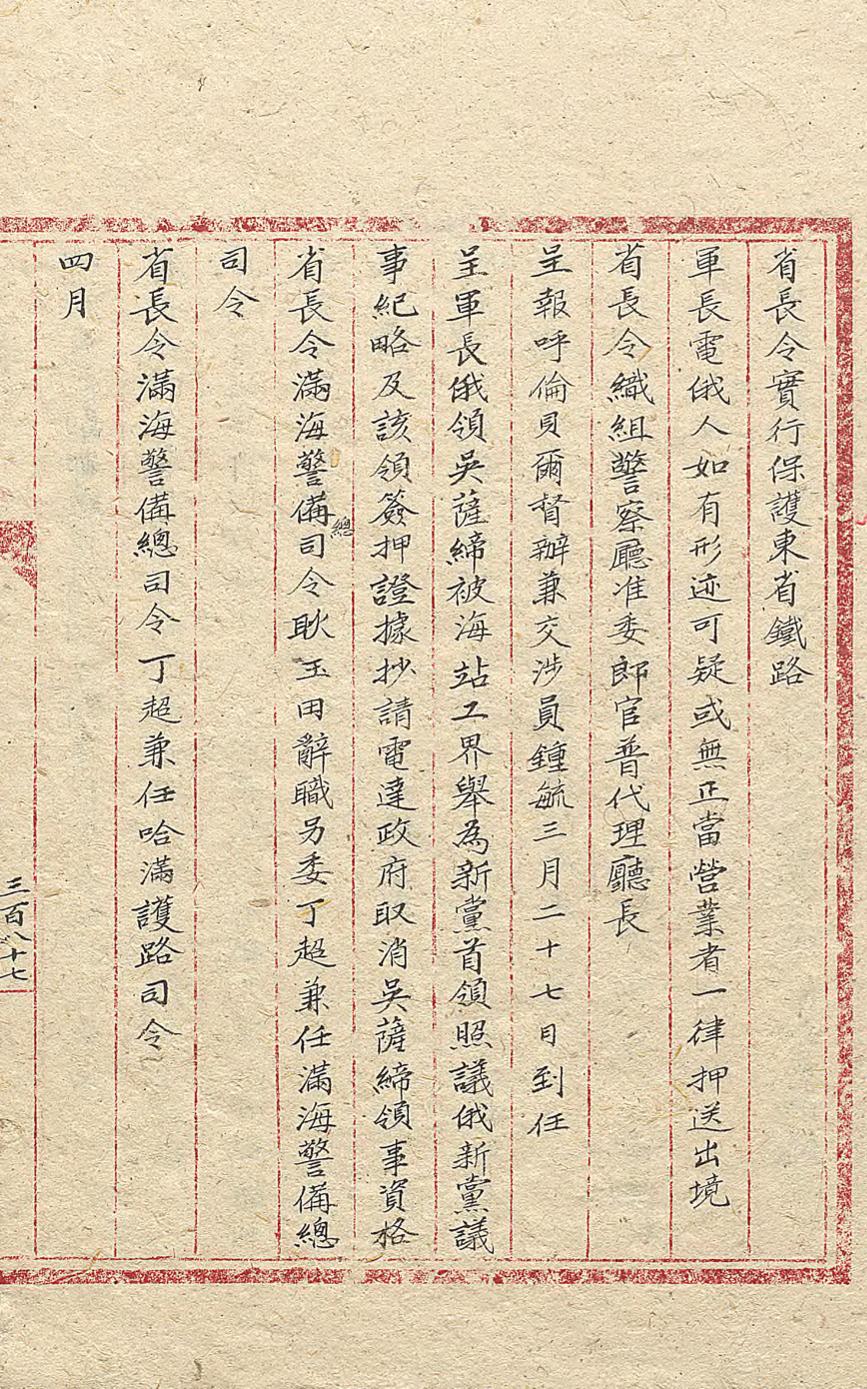 省長令實行保護東省鐵路
軍長電俄人如有形迹可疑或無正當營業者一律押送出境
省長令織組警察廳准委郎官普代理廳長
呈報呼倫貝爾督辦兼交涉員鍾毓三月二十七日到任
呈軍長俄領吳薩締被海站工界舉為新黨首領照議俄新黨議
事紀略及該領簽押證據抄請電達政府取消吳薩締領事資格
省長令滿海警備總司令耿玉田辭職另委丁超兼任滿海警備總
司令
省長令滿海警備總司令丁超兼任哈滿護路司令
四月
三百八十七